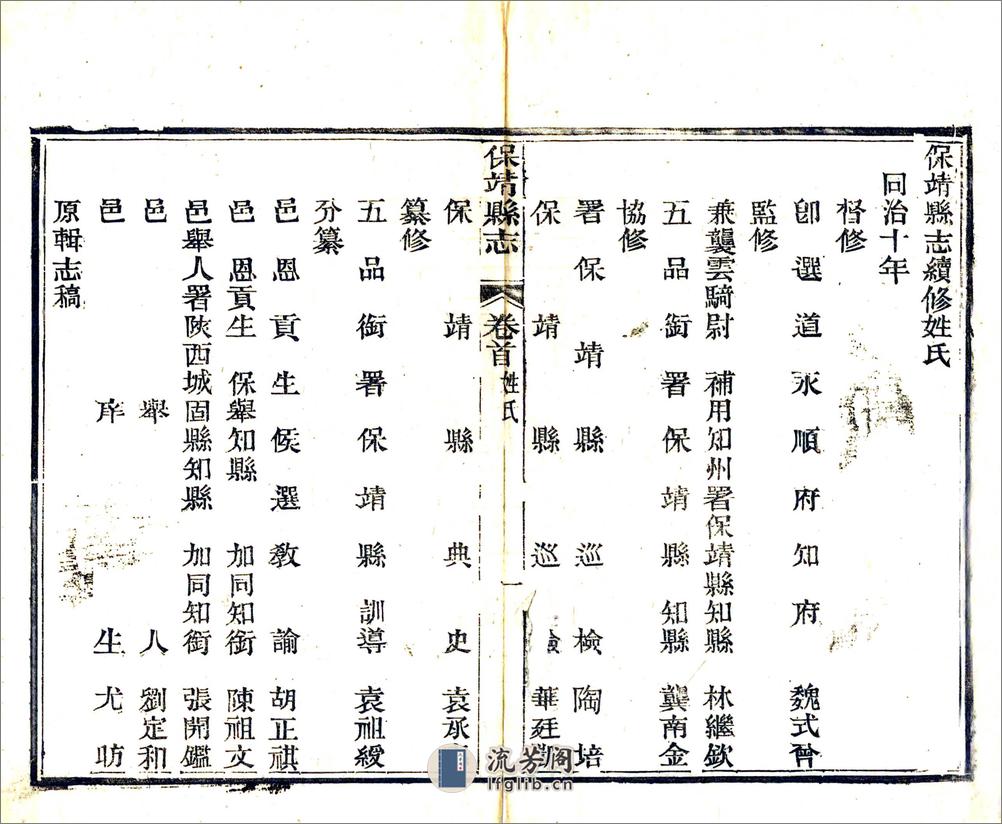 保靖縣志續修姓氏
同治十年
督修
卽選道永順府知府 魏式曾
監修
兼襲雲騎尉 補用知州署保靖縣知縣 林繼欽
五品銜署保靖縣知縣 龔南金
協修
署保靖縣巡檢 陶培
保靖縣巡檢 華廷
保靖縣志 卷首 姓氏 一
保靖縣典史 袁承
纂修
五品銜署保靖縣訓導 袁祖綬
分纂
邑恩貢生候選教諭 胡正祺
邑恩貢生 保舉知縣 加同知銜 陳祖文
邑舉人署陝西城固縣知縣 加同知銜 張開鑑
邑舉人 劉定和
邑庠生 尤昉
原輯志稿
流芳閣
lfglib.cn